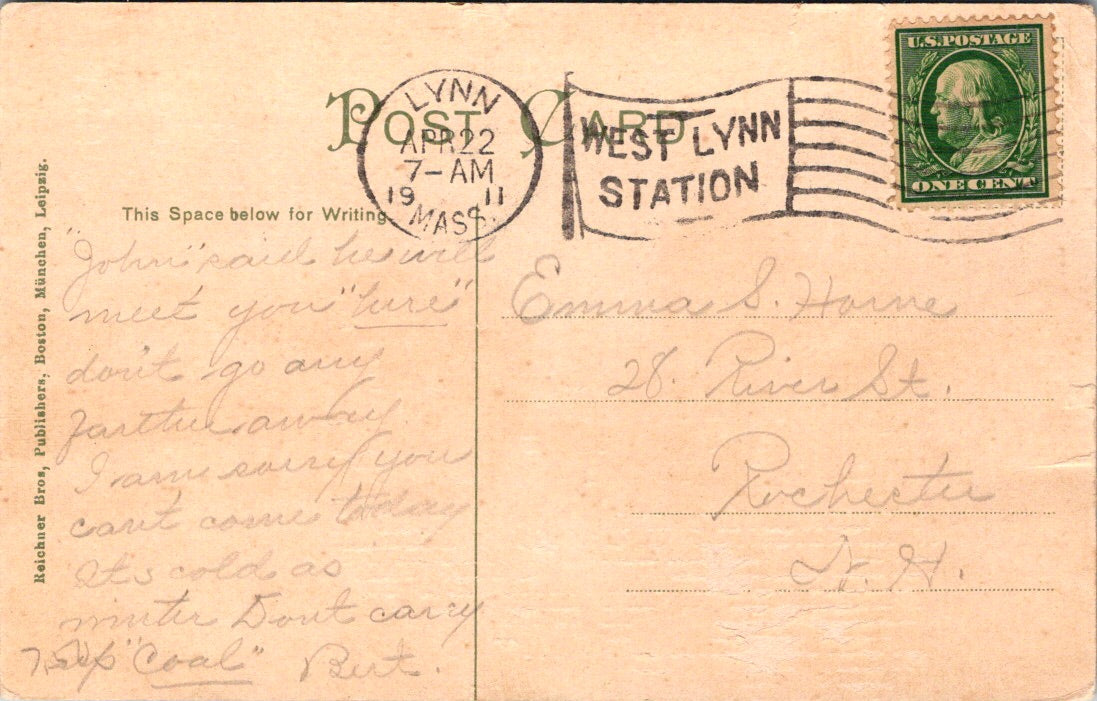 POST CARD
LYNN
APR 22
7-AM
19 11
MASS.
WEST LYNN
STATION
U.S. POSTAGE
ONE CENT
This Space below for Writing
Reichner Bros, Publishers, Boston, München, Leipzig.
"John" said he will
meet you "here"
don't go any
farther away
I am sorry you
can't come today
Its cold as
winter Dont carry
up "Coal" Bert.
Emma S. Horne
28. River St.
Rochester
N. H.